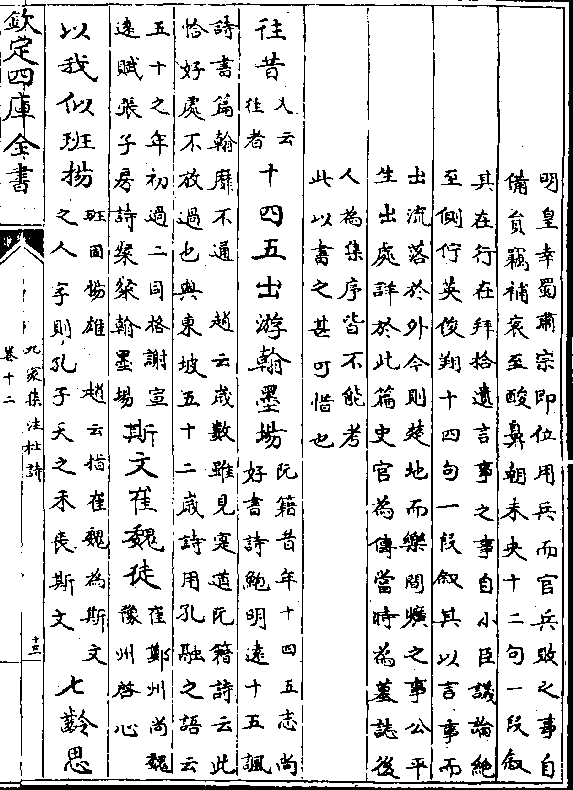 明皇幸蜀肅宗即位用兵而官兵敗之事自
備員竊補衮至酸鼻朝未央十二句一段叙
其在行在拜拾遺言事之事自小臣議論絶
至側佇英俊翔十四句一段叙其以言事而
出流落於外今則楚地而樂閒曠之事公平
生出處詳於此篇史官為傳當時為墓誌後
人為集序皆不能考
此以書之甚可惜也
往昔
云
往者
十四五出游翰墨場
阮籍昔年十四五志尚
好書詩鮑明遠十五諷
詩書篇翰靡不通 趙云歲數雖見寔道阮籍詩云此
恰好處不放過也與東坡五十二歲詩用孔融之語云
五十之年初過二同格謝宣
遠賦張子房詩粲粲翰墨場
斯文崔魏徒
崔鄭州尚魏
豫州啓心
以我似班揚
班固揚雄 趙云指崔魏為斯文
之人字則孔子天之未喪斯文
七齡思
欽定四庫全書
九家集注杜詩
卷十二
十三